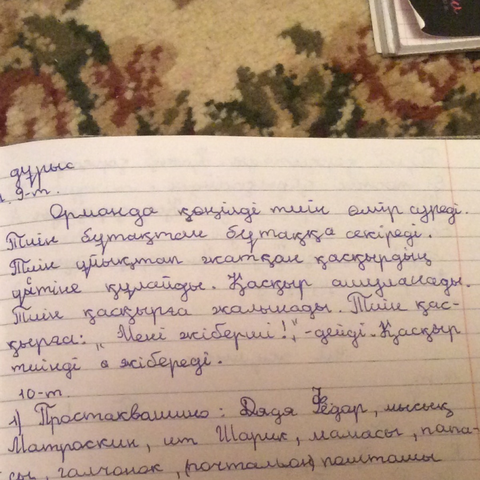 дұрыс
9-т.
Орманда көңілді тиін өмір сүреді.
Тиін бұтақтан бұтаққа секіреді.
Тиін ұйықтап жатқан қасқырдың
үстіне құлайды. Қасқыр ашуланады.
Тиін қасқырға жалынады. Тиін қас-
қырға: „Мені жіберші!",-дейді. Қасқыр
тиінді жібереді.
10-т.
1) Простаквашино: Дядя Фёдар, мысық
Матроскин, ит Шарик, мамасы, папа-
сы, галчонак, (почтальон) пошташы